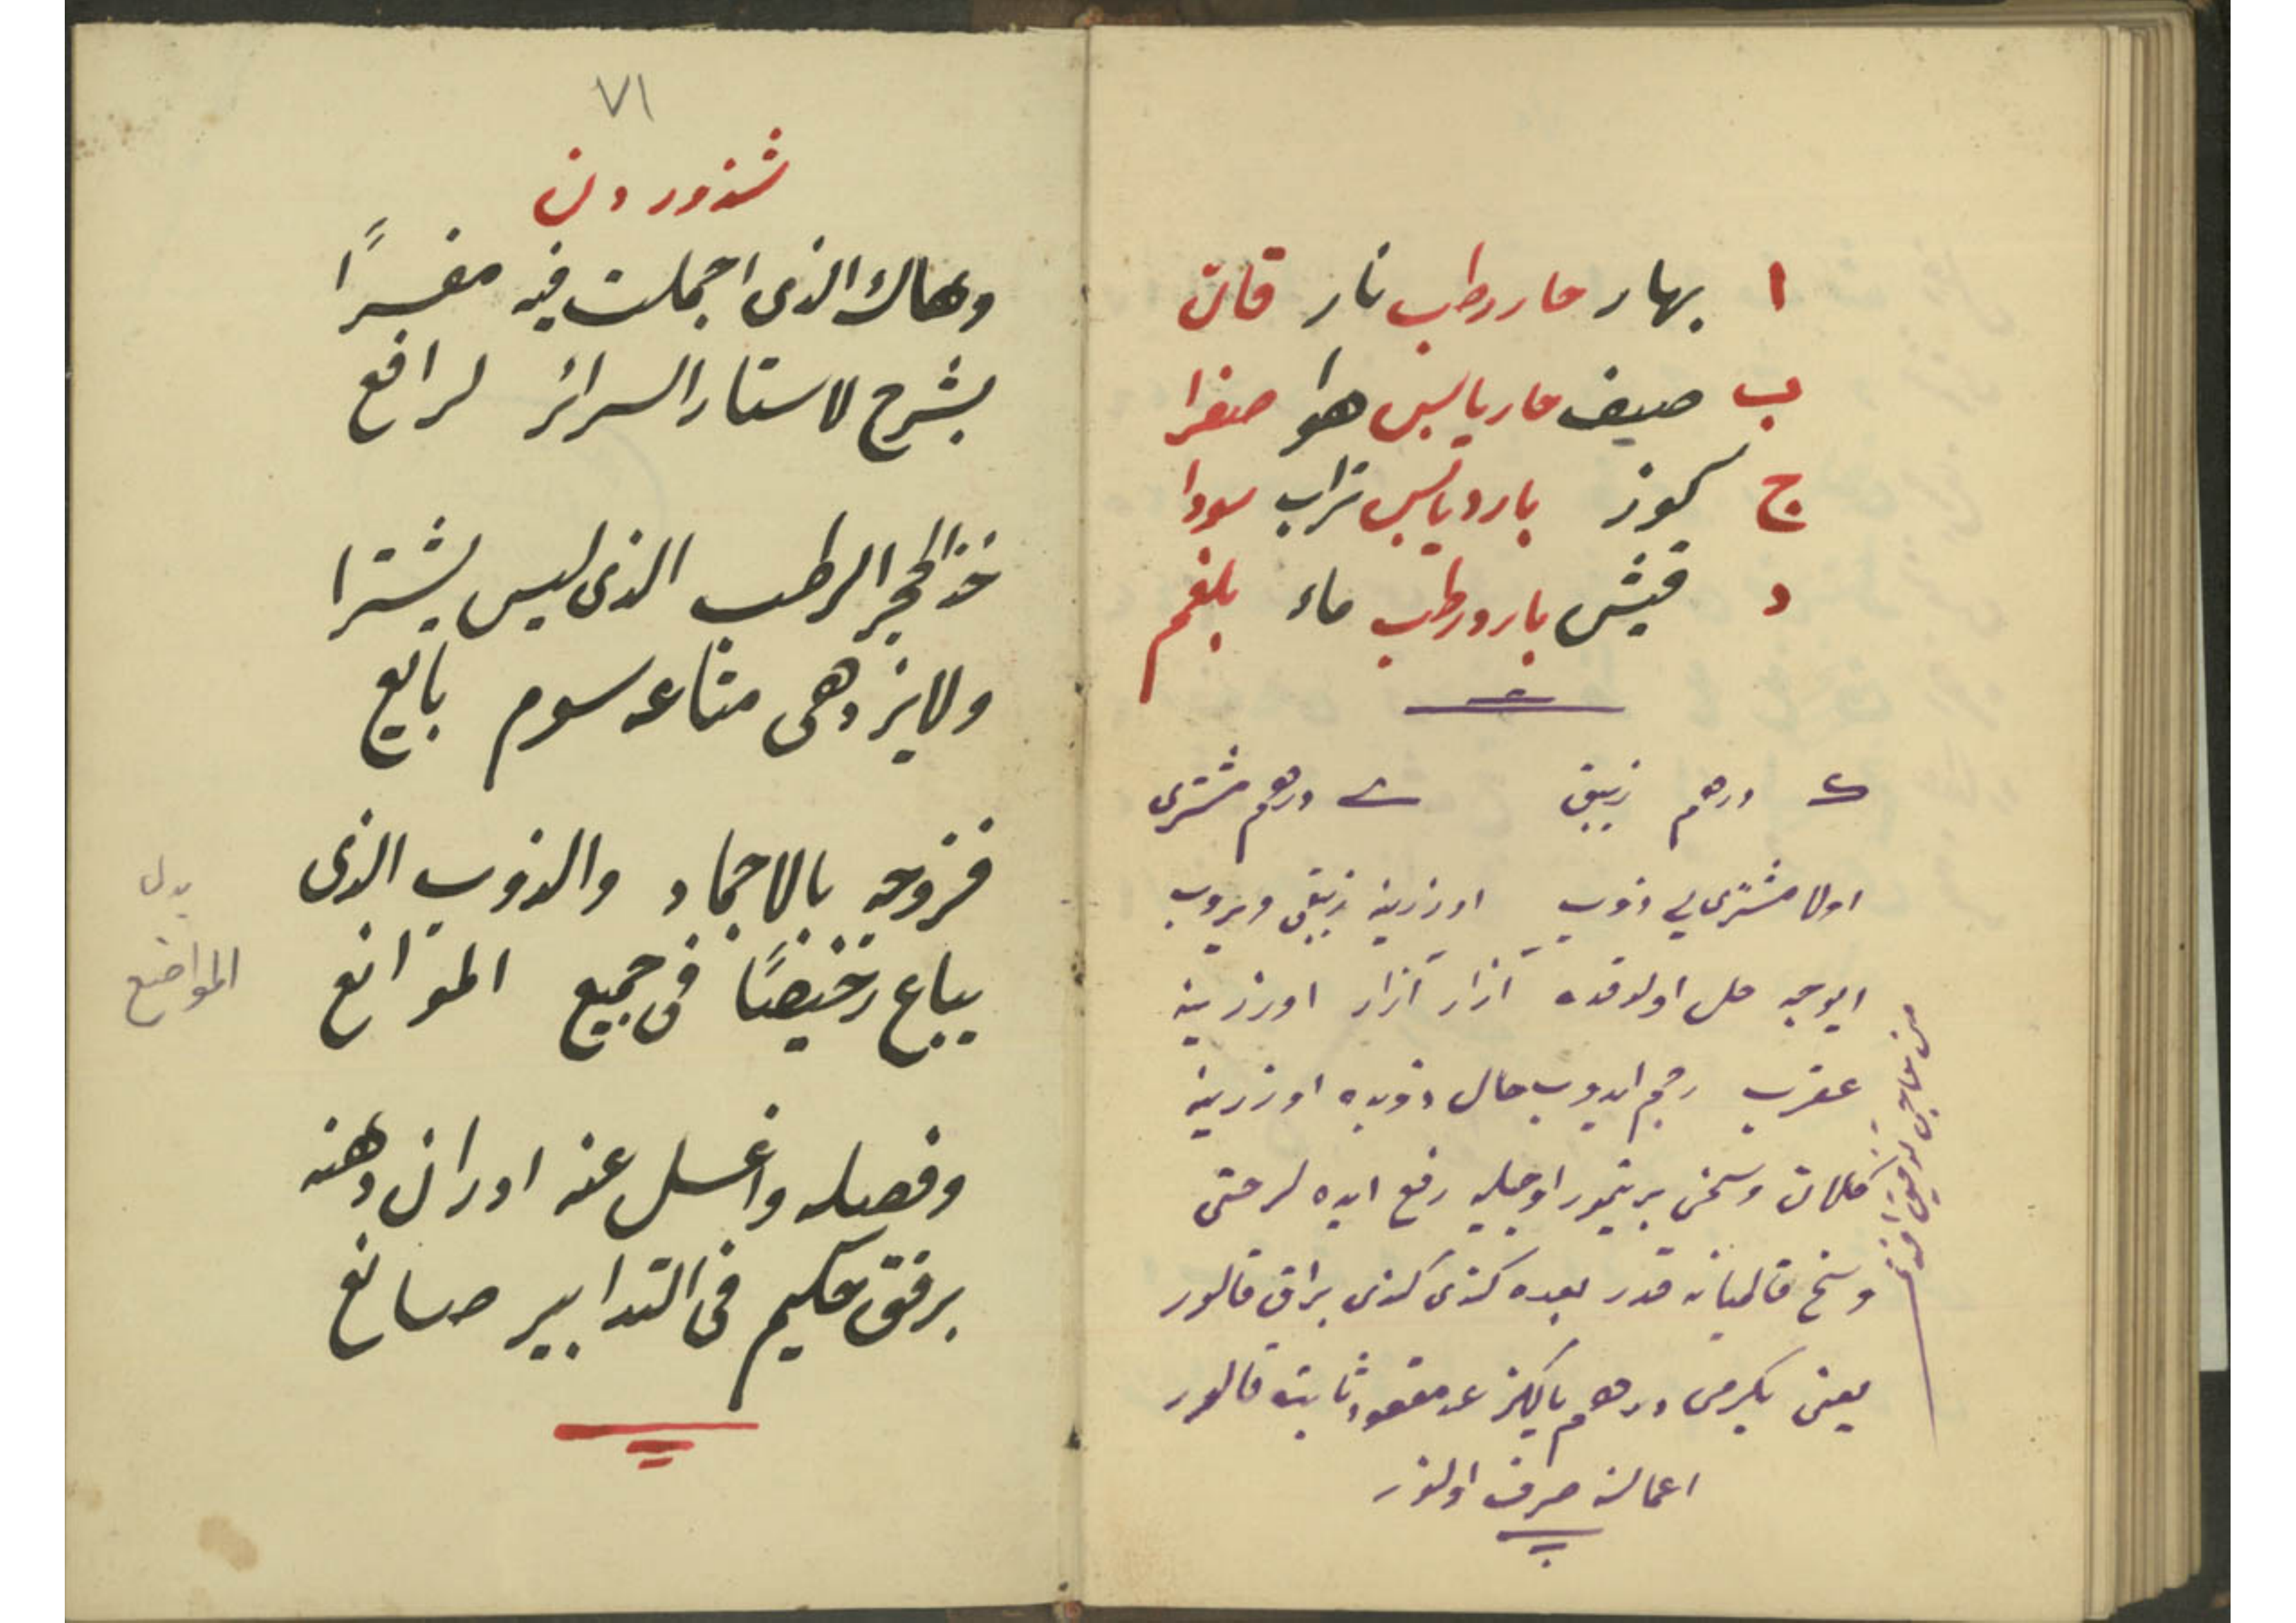 ا بهار حار رطب نار قان
ب صيف حار يابس هوا صفرا
ج كوز بارد يابس تراب سودا
د قيش بارد رطب ماء بلغم
درهم زيبق درهم مشترى
اولا مشترى يى ذوب اوزرينه زيبقى ويروب
ايوجه حل اولدقده آزار آزار اوزرينه
عقرب رجم ايدوب حال ذوبده اوزرينه
كلان وسخى بر تيمور اوجيله رفع ايده لر حتى
وسخ قالميانه قدر بعده كندى كندى براق قالور
يعنى يكرمى درهم پاكيزه عد معقود ثابته قالور
اعمالنه صرف اولنور
٧١
شذوردن
وهاك الذى اجملت فيه مفسرًا
بشرح لاستار السرائر لرافع
خذ الحجر الرطب الذى ليس يشترا
ولا يزدهى متاعه سوم بائع
فزوجه بالاجماد والذوب الذى
يباع رخيصًا فى جميع الموانع
بدل
المواضع
وفصله واغسل عنه ادران دهنه
برفق حكيم فى التدابير صانع